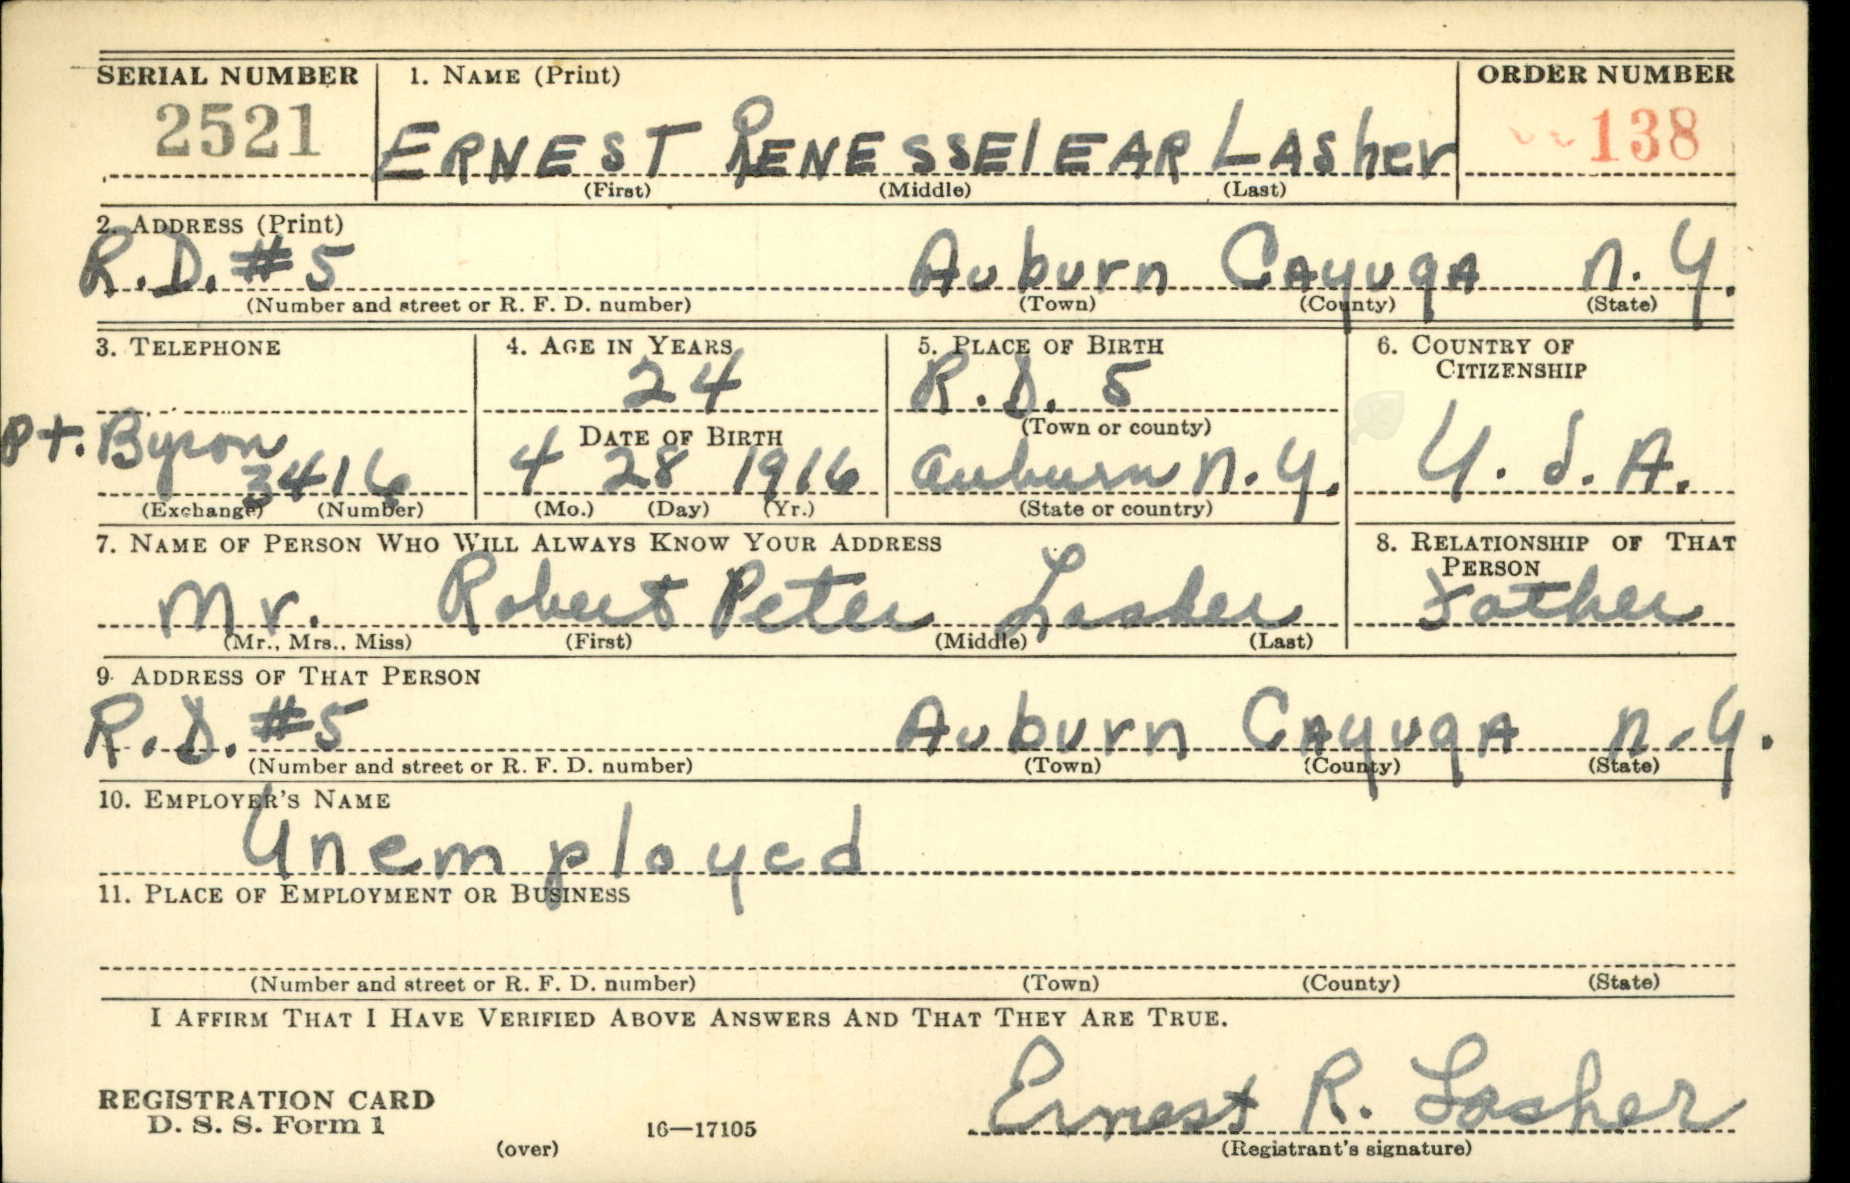 SERIAL NUMBER 1. NAME (Print) ORDER NUMBER
2521 ERNEST RENESSElEAR LASher 138
(First) (Middle) (Last)
2. ADDRESS (Print)
R.D. #5 Auburn CAyugA N.Y.
(Number and street or R. F. D. number) (Town) (County) (State)
3. TELEPHONE 4. AGE IN YEARS 5. PLACE OF BIRTH 6. COUNTRY OF CITIZENSHIP
24 R.D. 5
DATE OF BIRTH (Town or county)
Pt. Byron 3416 4 28 1916 Auburn N.Y. U.S.A.
(Exchange) (Number) (Mo.) (Day) (Yr.) (State or country)
7. NAME OF PERSON WHO WILL ALWAYS KNOW YOUR ADDRESS 8. RELATIONSHIP OF THAT PERSON
Mr. Robert Peter Lasher Father
(Mr., Mrs., Miss) (First) (Middle) (Last)
9. ADDRESS OF THAT PERSON
R.D. #5 Auburn CAyugA N.Y.
(Number and street or R. F. D. number) (Town) (County) (State)
10. EMPLOYER'S NAME
Unemployed
11. PLACE OF EMPLOYMENT OR BUSINESS
(Number and street or R. F. D. number) (Town) (County) (State)
I AFFIRM THAT I HAVE VERIFIED ABOVE ANSWERS AND THAT THEY ARE TRUE.
REGISTRATION CARD Ernest R. Lasher
D. S. S. Form 1 16—17105
(over) (Registrant's signature)